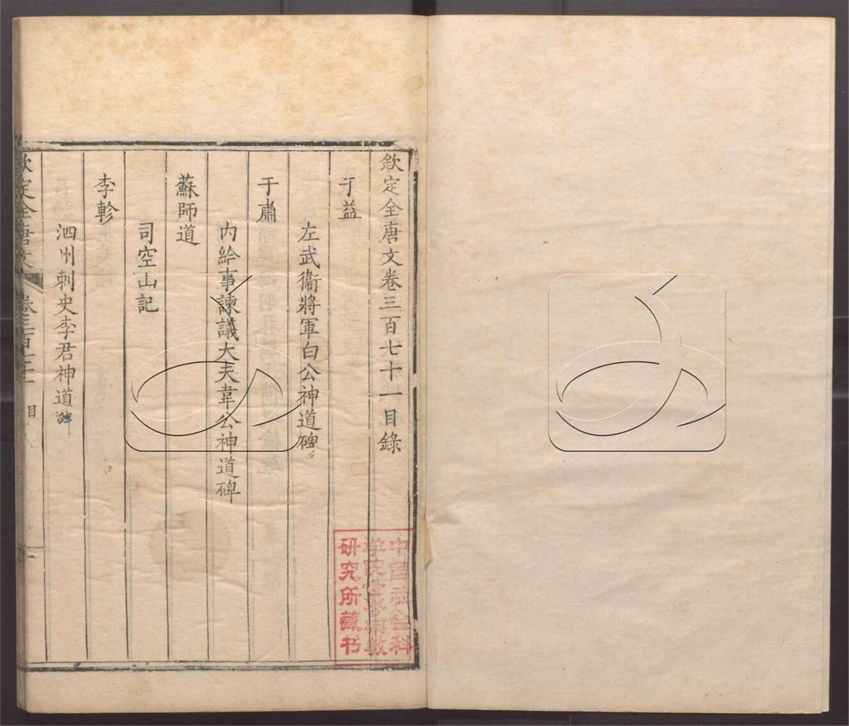 欽定全唐文卷三百七十一目錄
于益
左武衛將軍白公神道碑
于肅
內給事諫議大夫韋公神道碑
蘇師道
司空山記
李軫
泗州刺史李君神道碑
欽定全唐文 卷三百七十一 目
中國社會科
学院世界宗教
研究所藏书